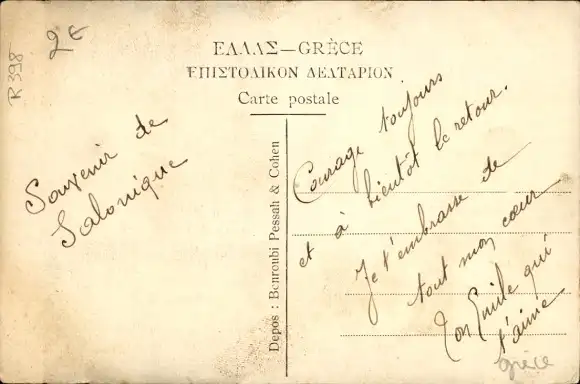 R398
2€
ΕΛΛΑΣ—GRÈCE
ΕΠΙΣΤΟΛΙΚΟΝ ΔΕΛΤΑΡΙΟΝ
Carte postale
Souvenir de
Salonique
Depos : Benroubi Pessah & Cohen
Courage toujours
et à bientôt le retour.
Je t'embrasse de
tout mon cœur
Ton Emile qui
t'aime
Grèce